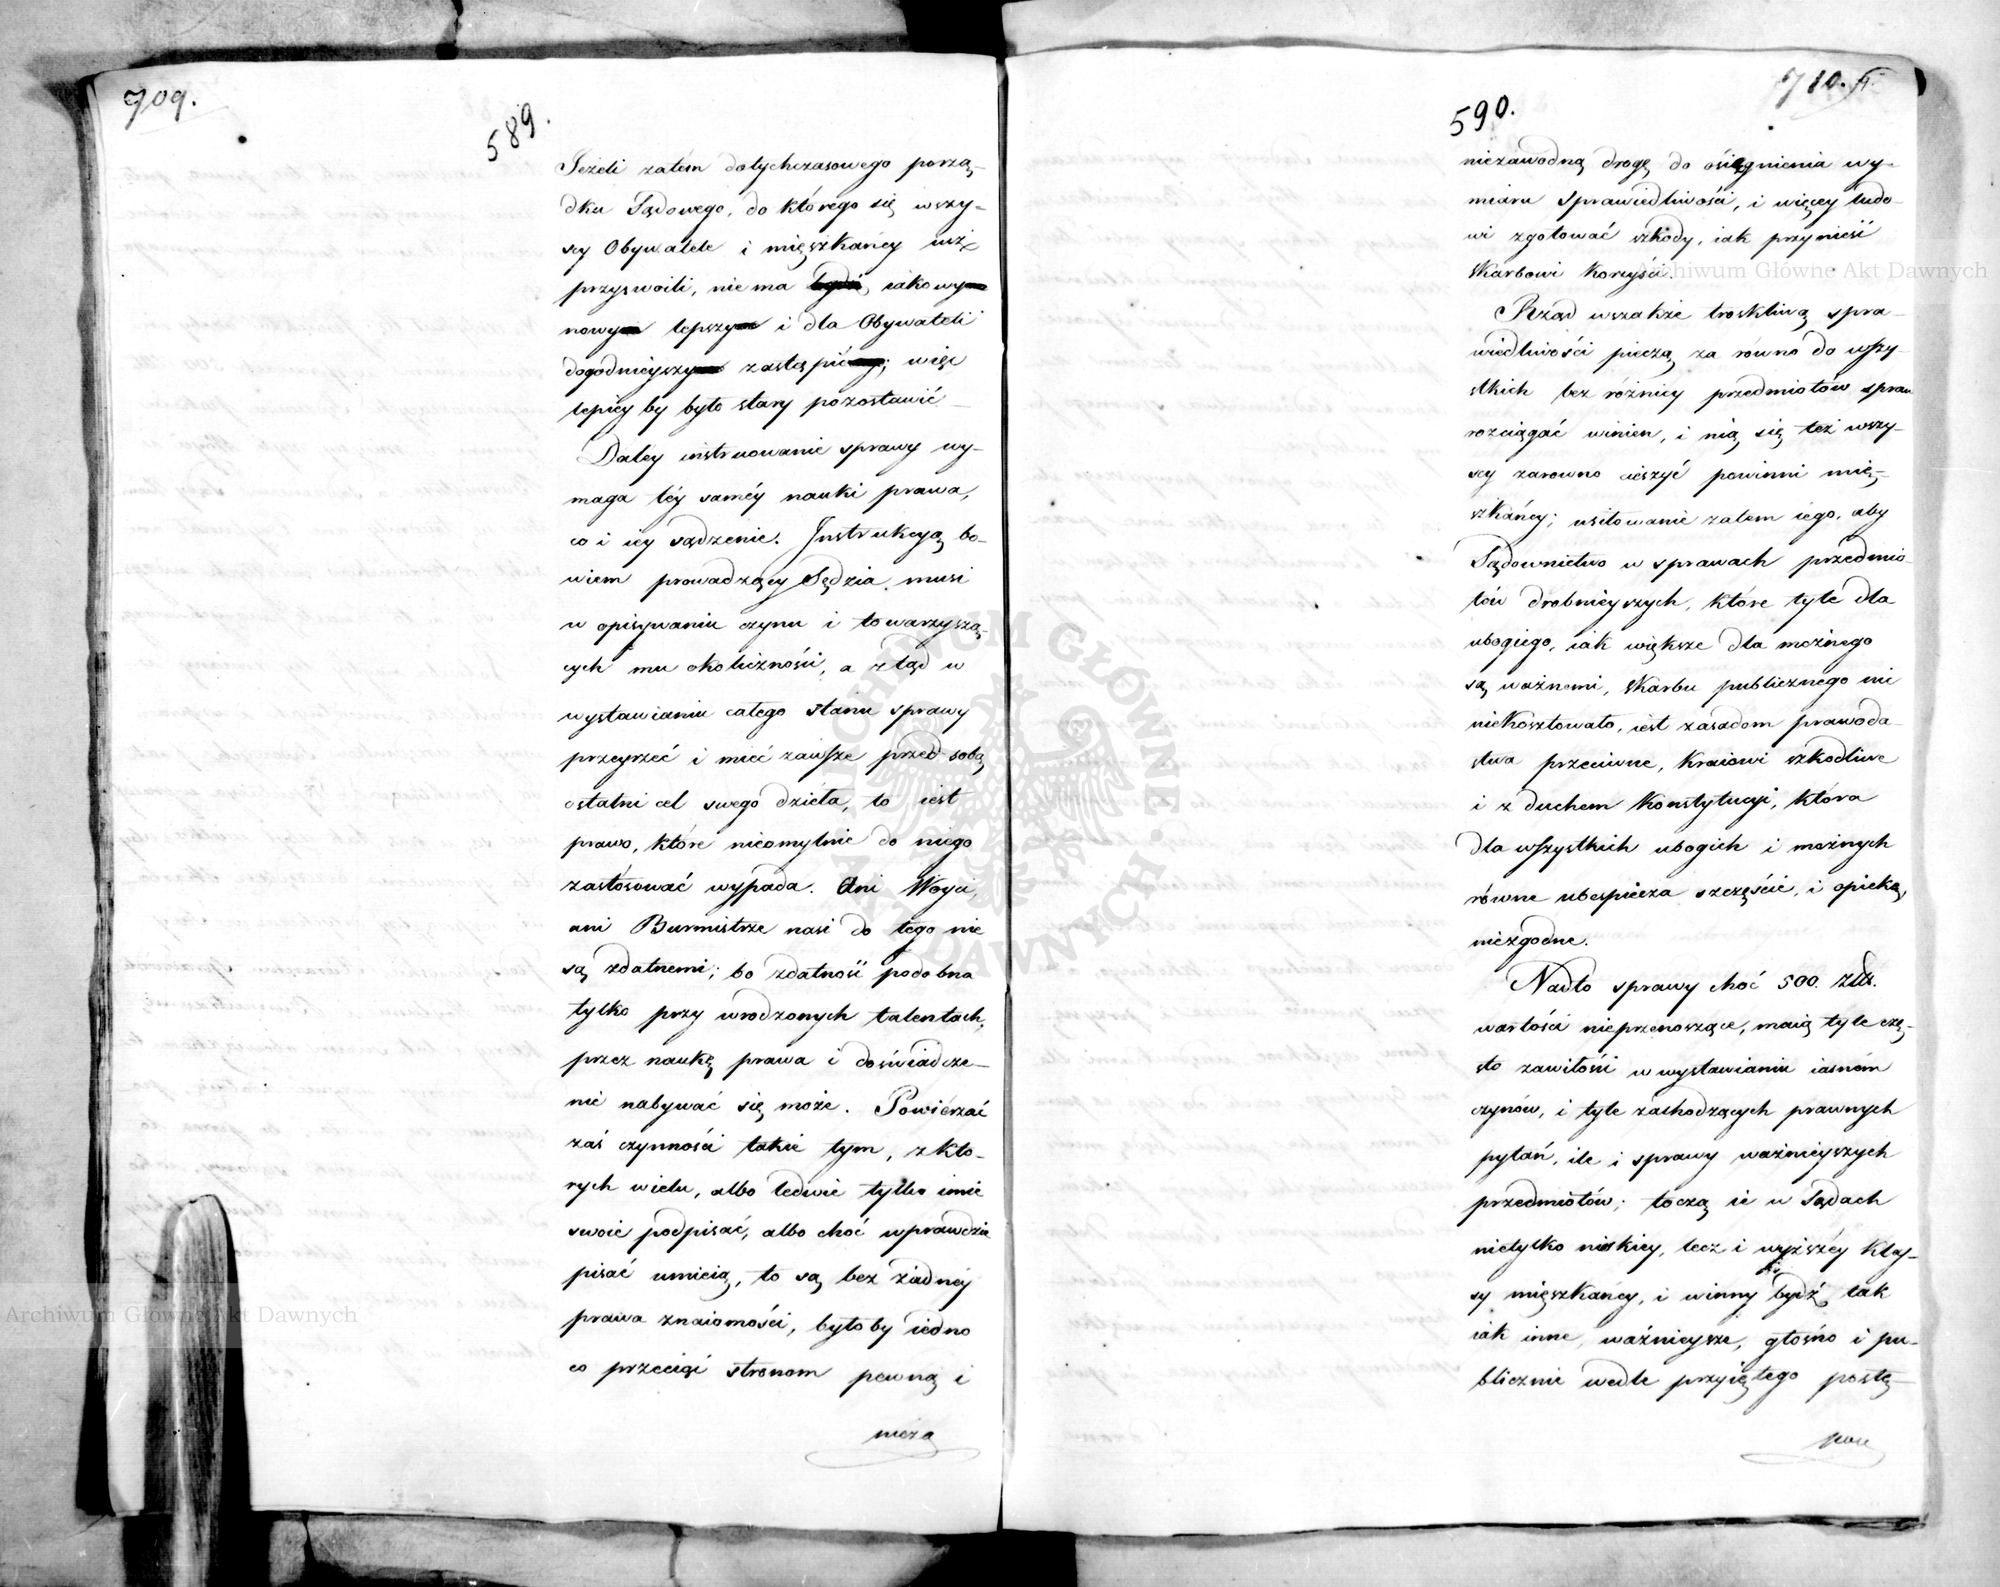 709.
589.
Jeżeli zatém dotychczasowego porzą-
dku Sądowego, do którego się wszy-
scy Obywatele i mięszkańcy już
przyswoili, niema iakowy
nowy lepszy i dla Obywateli
dogodnieyszy zastąpić; więc
lepiéy by było stary pozostawić
Daléy instruowanie sprawy wy-
maga téy saméy nauki prawa,
co i iéy sądzenie. Instrukcyą bo-
wiem prowadzący Sędzia, musi
w opisywaniu czynu i towarzyszą-
cych mu okoliczności, a ztąd w
wystawianiu całego stanu sprawy
przeyrzeć i mieć zawsze przed sobą
ostatni cel swego dzieła, to iest
prawo, które nieomylnie do niego
zastosować wypada. Ani Woyci,
ani Burmistrze nasi do tego nie
są zdatnemi; bo zdatność podobna
tylko przy wrodzonych talentach,
przez naukę prawa i doświadcze-
nie nabywać się może. Powiérzać
zaś czynności takie tym, z któ-
rych wielu, albo ledwie tylko imie
swoie podpisać, albo choć wprawdzie
pisać umieią, to są bez żadnéy
prawa znaiomości, byłoby iedno
co przeciąć stronom pewną i
nieza
710.
590.
niezawodną drogę do osięgnienia wy-
miaru sprawiedliwości, i więcéy ludo-
wi zgotować szkody, iak przynieść
Skarbowi korzyści.
Rząd wszakże troskliwą spra-
wiedliwości pieczą za równo do wszy-
stkich bez różnicy przedmiotów spraw
rozciągać winien, i nią się téż wszy-
scy zarowno cieszyć powinni mię-
szkańcy; usiłowanie zatem iego, aby
Sądownictwo w sprawach przedmio-
tów drobnieyszych, które tyle dla
ubogiego, iak większe dla możnego
są ważnemi, Skarbu publicznego nic
niekosztowało, iest zasadom prawoda-
stwa przeciwne, Kraiowi szkodliwe
i z duchem Konstytucyi, która
dla wszystkich ubogich i możnych
równe ubespiecza szczęście, i opiekę,
niezgodne.
Nadto sprawy choć 500. Złł.
wartości nieprzenoszące, maią tyle czę-
sto zawiłości w wystawianiu iasném
czynów, i tyle zachodzących prawnych
pytań, ile i sprawy ważnieyszych
przedmiotów; toczą ie w Sądach
nietylko niskiéy, lecz i wyższéy klas-
sy mięszkańcy, i winny bydź tak
iak inne, ważnieysze, głośno i pu-
blicznie wedle przyiętego postę-
powa
Archiwum Główne Akt Dawnych
Archiwum Główne Akt Dawnych
ARCHIWUM GŁÓWNE AKT DAWNYCH